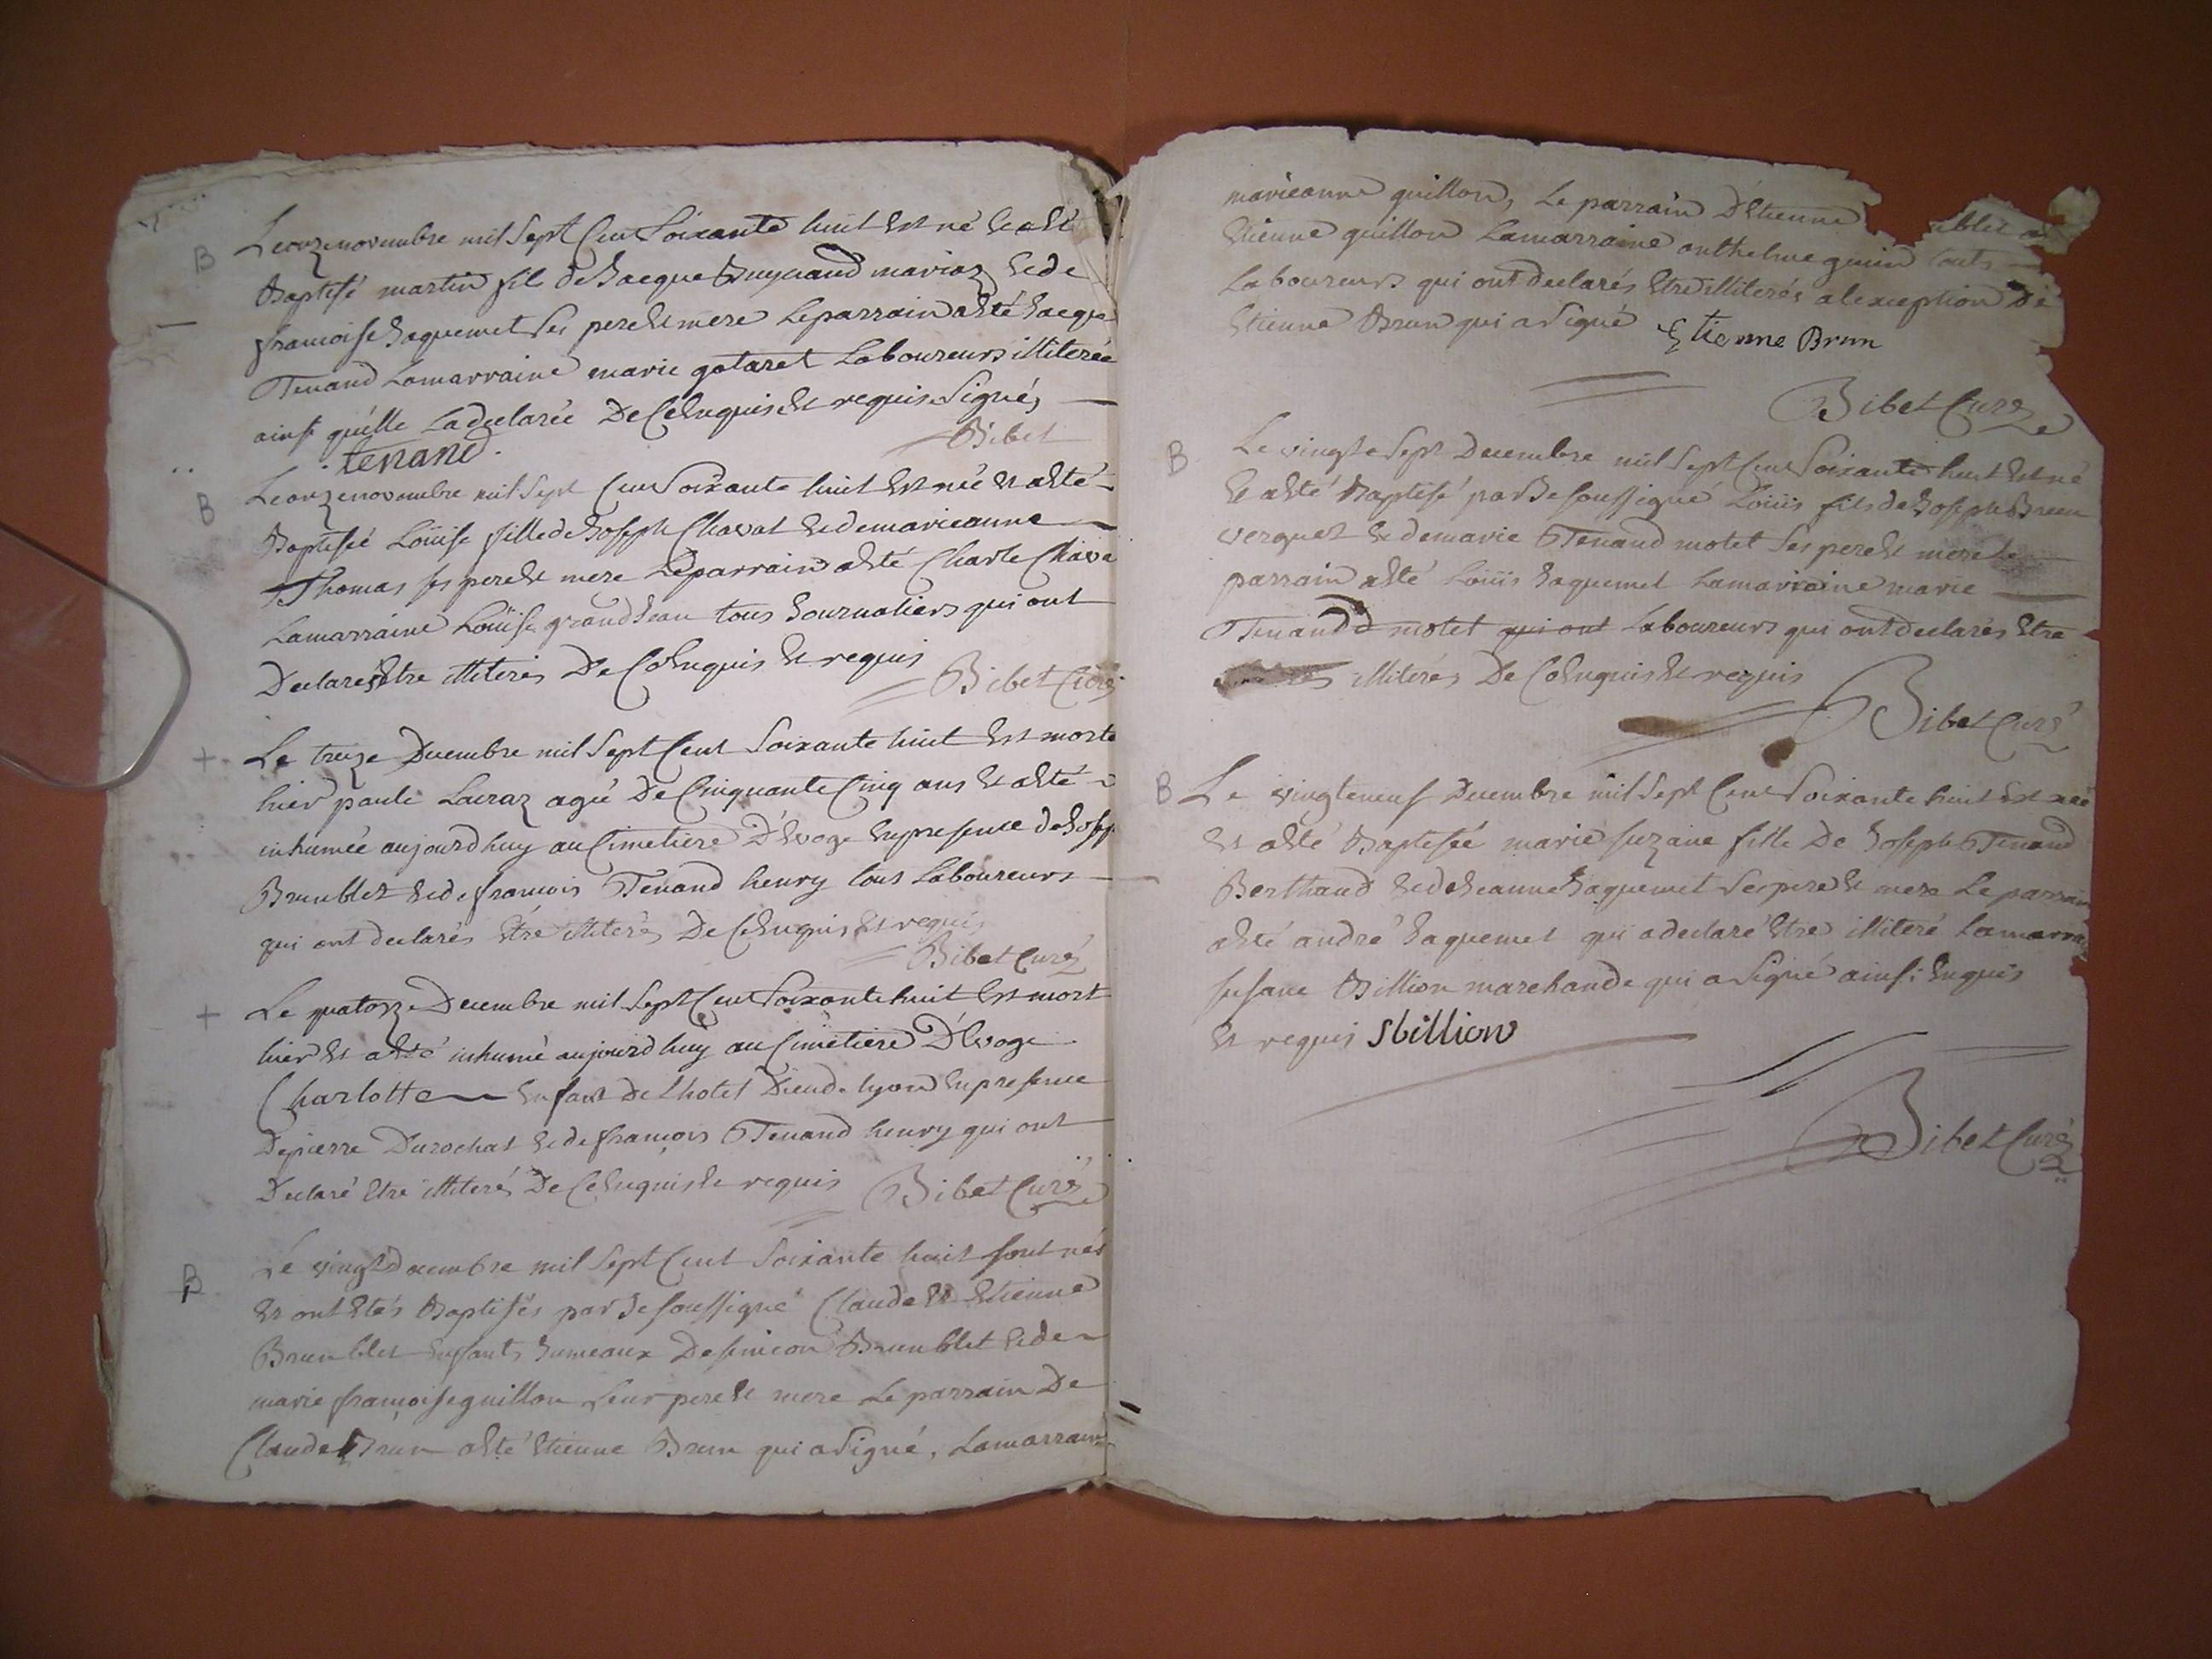 B
Le onze novembre mil Sept Cent Soixante huit Est né Et a Eté
Baptisé martin fils de Jacque Tenand Et de
francoise Jaquemet Ses pere Et mere Le parrain a Eté Jacque
Tenand La marraine marie gotaret Laboureurs illiterée
ainsi qu'elle La declarée De Ce Enquis Et requis Signé,
tenand. Bibet
B
Le onze novembre mil Sept Cent Soixante huit Est née Et a Eté
Baptisée Loüise fille de Joseph Chavat Et de marieanne
Thomas ses pere Et mere Le parrain a Eté Charle Chava
La marraine Loüise grandJean tous Journaliers qui ont
Declarés Etre illiterés De Ce Enquis Et requis
Bibet Curé
+
Le treize Decembre mil Sept Cent Soixante huit Est morte
hier paule Lacraz agée De Cinquante Cinq ans Et a Eté
inhumée aujourdhuy au Cimetiere D'Evoge En presence de Josep
Brunblet Et de francois Tenand henry tous Laboureurs
qui ont declarés Etre illiterés De Ce Enquis Et requis
Bibet Curé
+
Le quatorze Decembre mil Sept Cent Soixante huit Est mort
hier Et a Eté inhumé aujourd huy au Cimetiere D'Evoge
Charlotte Enfant De L'hotel Dieu de Lyon En presence
De pierre Durochat Et de francois Tenand henry qui ont
Declaré Etre illiterés De Ce Enquis Et requis Bibet Curé
B
Le vingt Decembre mil Sept Cent Soixante huit sont nés
Et ont Etés Baptisés par Je soussigné Claude Et Etienne
Brunblet Enfants Jumeaux De Brunblet Et de
marie francoise guillon Leur pere Et mere Le parrain De
Claude Brun a Eté Etienne Brun qui a Signé, La marraine
marieanne guillon, Le parrain D'Etienne ublet a
Etienne guillon La marraine onthelme genin touts
Laboureurs qui ont declarés Etre illiterés a lexception De
Etienne Brun qui a Signé Etienne Brun
Bibet Curé
B
Le vingt e Sept Decembre mil Sept Cent Soixante huit Est né
Et a Eté Baptisé par Je soussigné Loüis fils de Joseph Brun
verguet Et de marie Tenand motet Ses pere Et mere Le
parrain a Eté Loüis Jaquemet La marraine marie
Tenand motet qui ont Laboureurs qui ont declarés Etre
illiterés De Ce Enquis Et requis
Bibet Curé
B
Le vingt e neuf Decembre mil Sept Cent Soixante huit Est née
Et a Eté Baptisée marie suzane fille De Joseph Tenand
Berthand Et de Jeanne Jaquemet Ses pere Et mere Le parrain
a Eté andré Jaquemet qui a declaré Etre illiteré La marra
susane Billion marchande qui a Signé ainsi Enquis
Et requis Sbillion
Bibet Curé